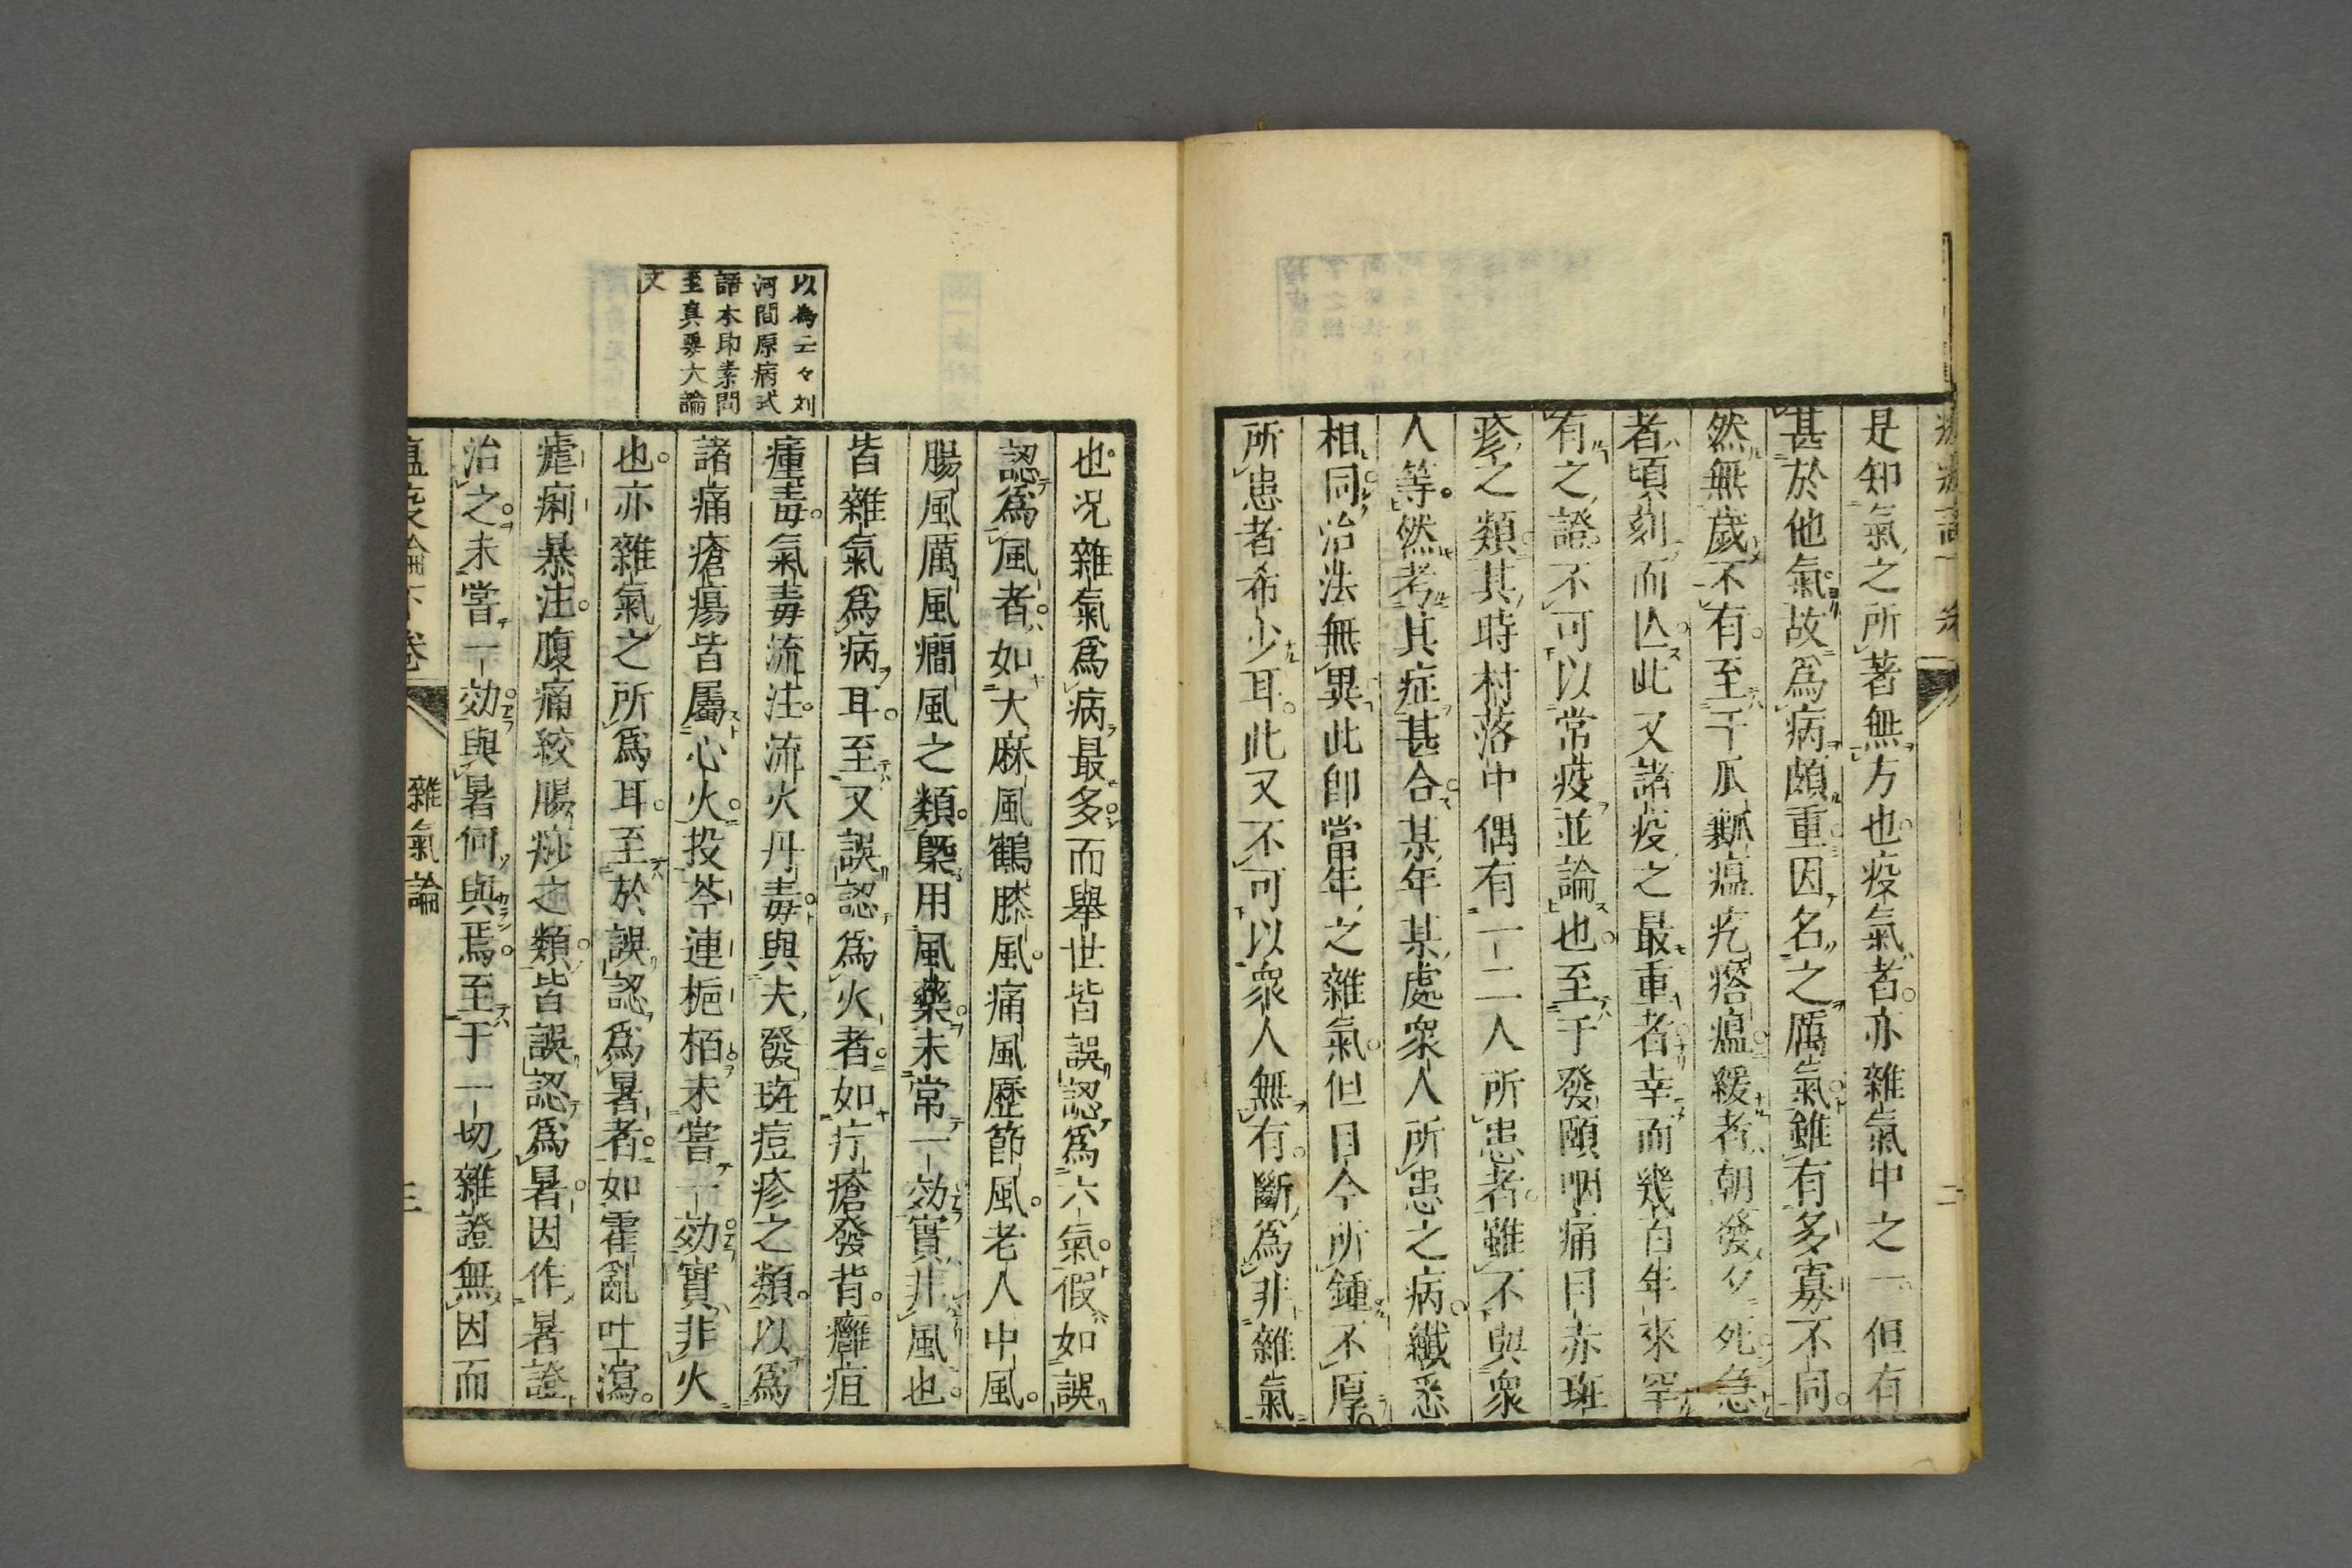 是知氣之所著無方也疫氣者亦雜氣中之一但有
甚於他氣故爲病頗重因名之厲氣雖有多寡不同
然無歲不有至于瓜瓤瘟疙瘩瘟緩者朝發夕死急
者頃刻而亾此又諸疫之最重者幸而幾百年來罕
有之證不可以常疫並論也至于發頤咽痛目赤斑
疹之類其時村落中偶有一二人所患者雖不與衆
人等然考其症甚合某年某處衆人所患之病纖悉
相同治法無異此卽當年之雜氣但目今所鍾不厚
所患者希少耳此又不可以衆人無有斷爲非雜氣
以爲云々刘
河間原病式
語本即素問
至真要大論
文
也况雜氣爲病最多而舉世皆誤認爲六氣假如誤
認爲風者如大麻風鶴膝風痛風歷節風老人中風
腸風厲風癇風之類槩用風藥未常一効實非風也
皆雜氣爲病耳至又誤認爲火者如疔瘡發背癰疽
瘇毒氣毒流注流火丹毒與夫發斑痘疹之類以爲
諸痛瘡瘍皆屬心火投芩連梔栢未嘗一効實非火
也亦雜氣之所爲耳至於誤認爲暑者如霍亂吐瀉
瘧痢暴注腹痛絞腸痧之類皆誤認爲暑因作暑證
治之未嘗一効與暑何與焉至于一切雜證無因而
瘟疫論下卷
雜氣論
三